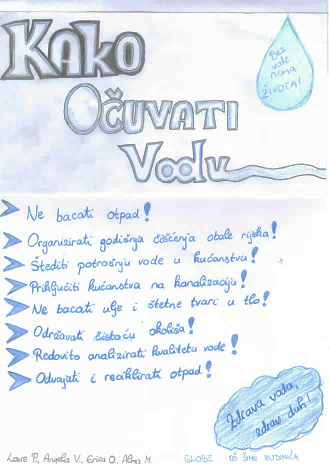 KAKO
OČUVATI
VODU
Bez
vode
nema
ŽIVOTA!
Ne bacati otpad!
Organizirati godišnja čišćenja obale rijeka!
Štediti potrošnju vode u kućanstvu!
Priključiti kućanstva na kanalizaciju!
Ne bacati ulje i štetne tvari u tlo!
Održavati čistoću okoliša!
Redovito analizirati kvalitetu vode!
Odvajati i reciklirati otpad!
Zdrava voda,
zdrav duh!
Lovre P., Angela V., Erica O., Alma M. GLOBE OŠ ŠIME BUDINIĆA